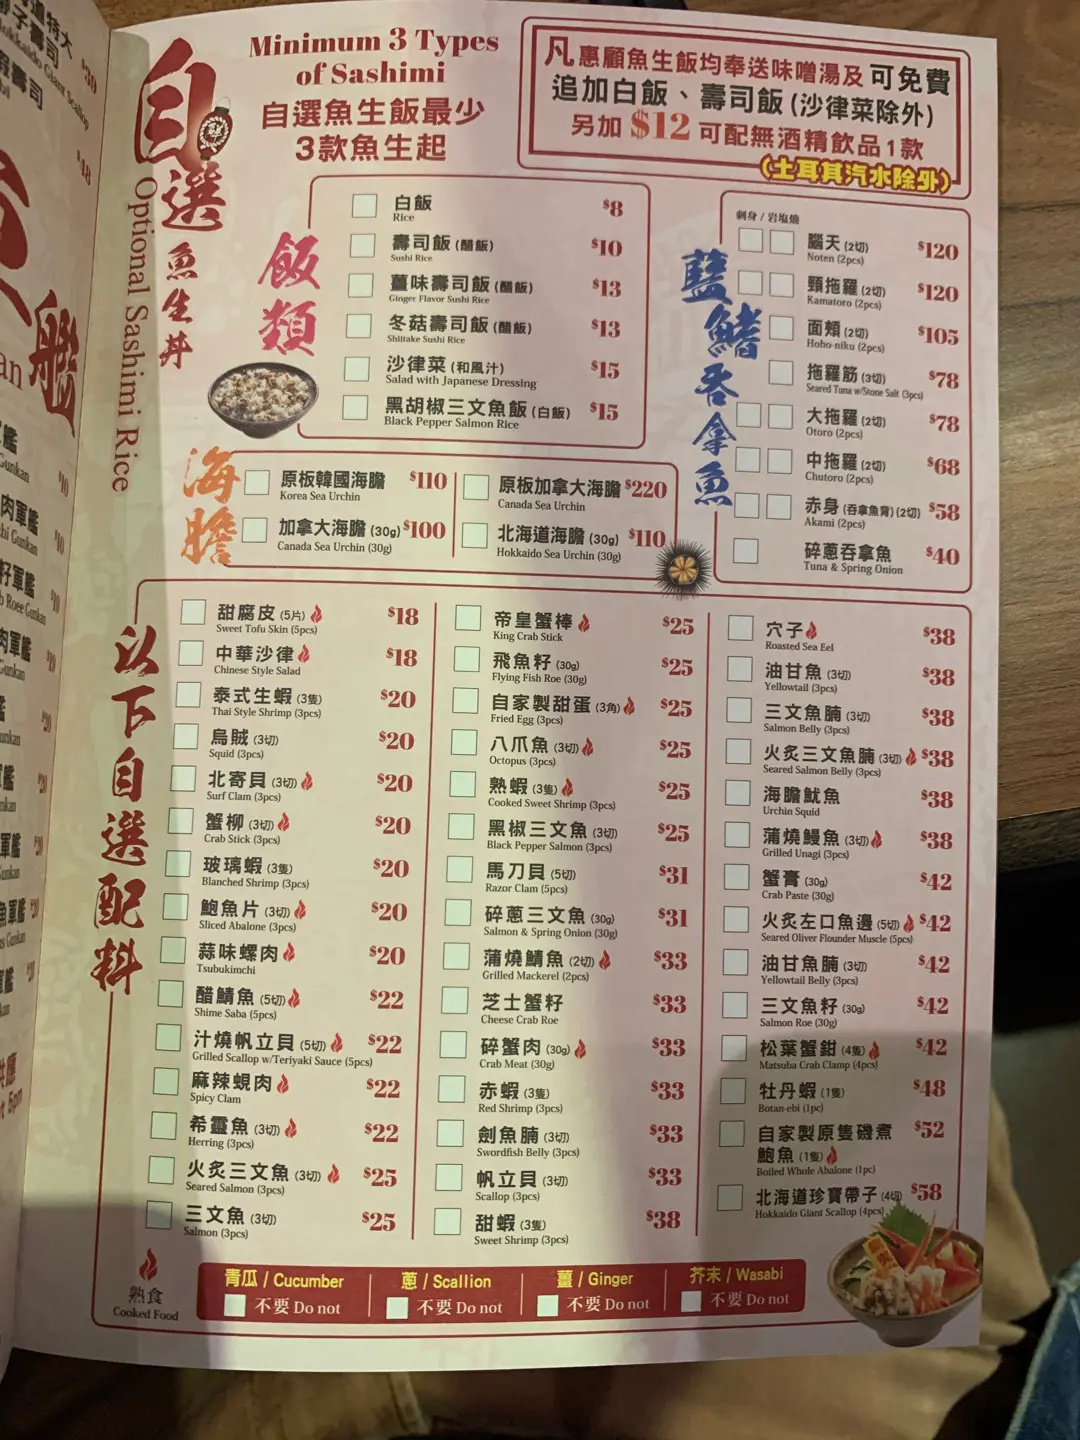 自選
魚生丼
Optional Sashimi Rice
Minimum 3 Types
of Sashimi
自選魚生飯最少
3款魚生起
凡惠顧魚生飯均奉送味噌湯及可免費
追加白飯、壽司飯(沙律菜除外)
另加 $12 可配無酒精飲品1款
(土耳其汽水除外)
飯類
白飯 $8
Rice
壽司飯(醋飯) $10
Sushi Rice
薑味壽司飯(醋飯) $13
Ginger Flavor Sushi Rice
冬菇壽司飯(醋飯) $13
Shiitake Sushi Rice
沙律菜(和風汁) $15
Salad with Japanese Dressing
黑胡椒三文魚飯(白飯) $15
Black Pepper Salmon Rice
藍鰭吞拿魚
刺身 / 岩塩燒
腦天(2切) $120
Noten (2pcs)
頸拖羅(2切) $120
Kamatoro (2pcs)
面頰(2切) $105
Hoho-niku (2pcs)
拖羅筋(3切) $78
Seared Tuna w/Stone Salt (3pcs)
大拖羅(2切) $78
Otoro (2pcs)
中拖羅(2切) $68
Chutoro (2pcs)
赤身(吞拿魚背)(2切) $58
Akami (2pcs)
碎蔥吞拿魚 $40
Tuna & Spring Onion
海膽
原板韓國海膽 $110
Korea Sea Urchin
加拿大海膽(30g) $100
Canada Sea Urchin (30g)
原板加拿大海膽 $220
Canada Sea Urchin
北海道海膽(30g) $110
Hokkaido Sea Urchin (30g)
以下自選配料
甜腐皮(5片) $18
Sweet Tofu Skin (5pcs)
中華沙律 $18
Chinese Style Salad
泰式生蝦(3隻) $20
Thai Style Shrimp (3pcs)
烏賊(3切) $20
Squid (3pcs)
北寄貝(3切) $20
Surf Clam (3pcs)
蟹柳(3切) $20
Crab Stick (3pcs)
玻璃蝦(3隻) $20
Blanched Shrimp (3pcs)
鮑魚片(3切) $20
Sliced Abalone (3pcs)
蒜味螺肉 $20
Tsubukimchi
醋鯖魚(5切) $22
Shime Saba (5pcs)
汁燒帆立貝(5切) $22
Grilled Scallop w/Teriyaki Sauce (5pcs)
麻辣蜆肉 $22
Spicy Clam
希靈魚(3切) $22
Herring (3pcs)
火炙三文魚(3切) $25
Seared Salmon (3pcs)
三文魚(3切) $25
Salmon (3pcs)
帝皇蟹棒 $25
King Crab Stick
飛魚籽(30g) $25
Flying Fish Roe (30g)
自家製甜蛋(3角) $25
Fried Egg (3pcs)
八爪魚(3切) $25
Octopus (3pcs)
熟蝦(3隻) $25
Cooked Sweet Shrimp (3pcs)
黑椒三文魚(3切) $25
Black Pepper Salmon (3pcs)
馬刀貝(5切) $31
Razor Clam (5pcs)
碎蔥三文魚(30g) $31
Salmon & Spring Onion (30g)
蒲燒鯖魚(2切) $33
Grilled Mackerel (2pcs)
芝士蟹籽 $33
Cheese Crab Roe
碎蟹肉(30g) $33
Crab Meat (30g)
赤蝦(3隻) $33
Red Shrimp (3pcs)
劍魚腩(3切) $33
Swordfish Belly (3pcs)
帆立貝(3切) $33
Scallop (3pcs)
甜蝦(3隻) $38
Sweet Shrimp (3pcs)
穴子 $38
Roasted Sea Eel
油甘魚(3切) $38
Yellowtail (3pcs)
三文魚腩(3切) $38
Salmon Belly (3pcs)
火炙三文魚腩(3切) $38
Seared Salmon Belly (3pcs)
海膽魷魚 $38
Urchin Squid
蒲燒鰻魚(3切) $38
Grilled Unagi (3pcs)
蟹膏(30g) $42
Crab Paste (30g)
火炙左口魚邊(5切) $42
Seared Oliver Flounder Muscle (5pcs)
油甘魚腩(3切) $42
Yellowtail Belly (3pcs)
三文魚籽(30g) $42
Salmon Roe (30g)
松葉蟹鉗(4隻) $42
Matsuba Crab Clamp (4pcs)
牡丹蝦(1隻) $48
Botan-ebi (1pc)
自家製原隻磯煮 $52
鮑魚(1隻)
Boiled Whole Abalone (1pc)
北海道珍寶帶子(4切) $58
Hokkaido Giant Scallop (4pcs)
熟食
Cooked Food
青瓜 / Cucumber
不要 Do not
蔥 / Scallion
不要 Do not
薑 / Ginger
不要 Do not
芥末 / Wasabi
不要 Do not